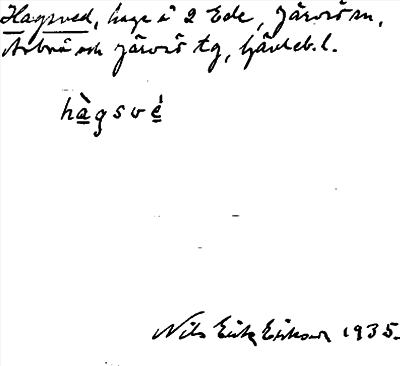 Hagsved, hage i 2 Ede, Järvsö sn,
Arbrå och Järvsö tg, Gävleb. l.
hàgsvé
Nils Erik Eriksson 1935.